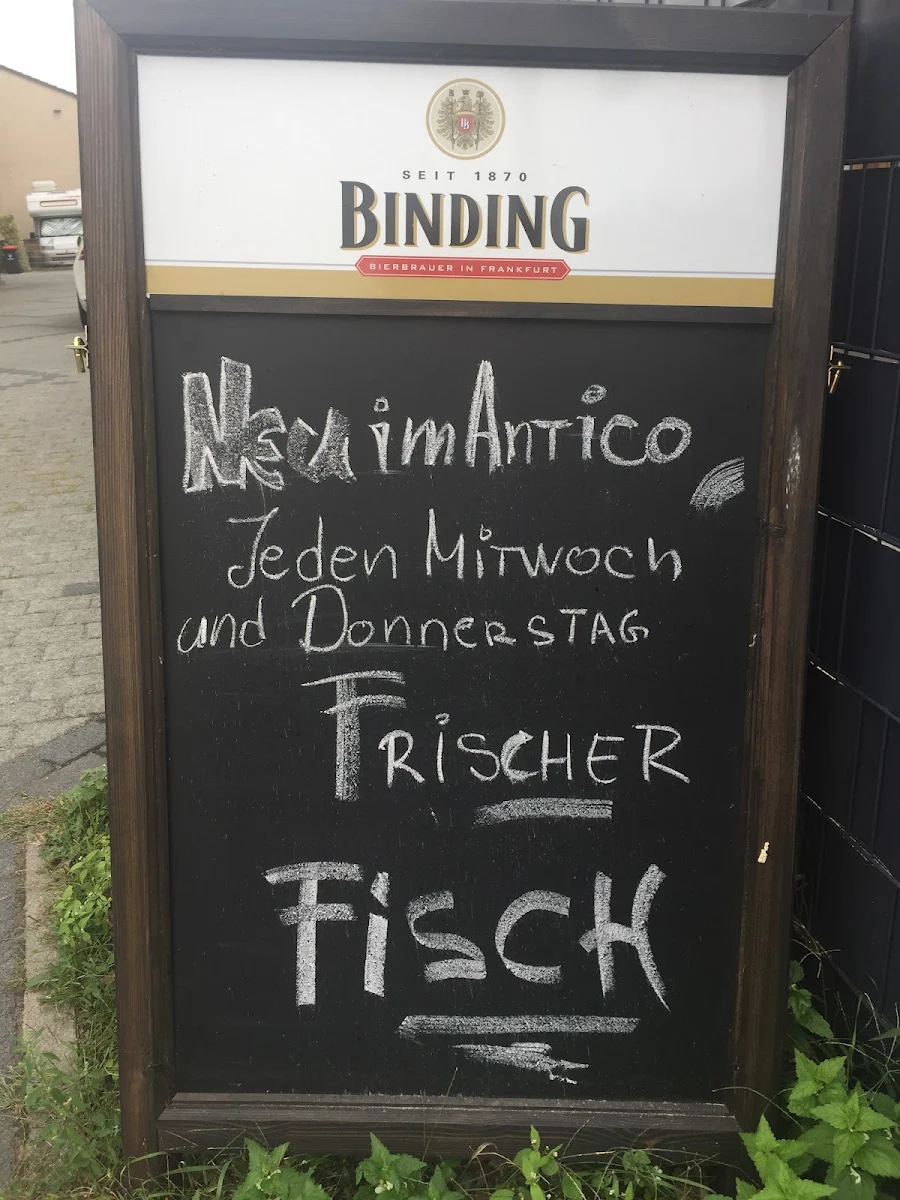 SEIT 1870
BINDING
BIERBRAUER IN FRANKFURT
Neu im Antico
Jeden Mitwoch
und DonnerSTAG
FRiSCHER
FiSCH